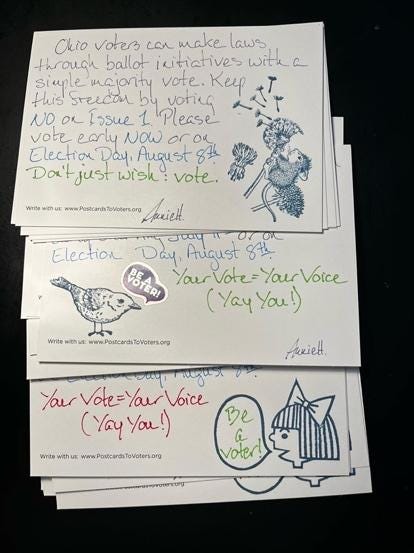 Ohio voters can make laws
through ballot initiatives with a
simple majority vote. Keep
this freedom by voting
NO on Issue 1. Please
vote early NOW or on
Election Day, August 8th.
Don't just wish: vote.
Write with us: www.PostcardsToVoters.org
AnnieH.
or on
Election Day, August 8th.
BE A
VOTER!
Your Vote=Your Voice
(Yay You!)
Write with us: www.PostcardsToVoters.org
AnnieH.
Election Day, August 8th.
Your Vote=Your Voice
(Yay You!)
Be
a
voter!
Write with us: www.PostcardsToVoters.org
ToVoters.org